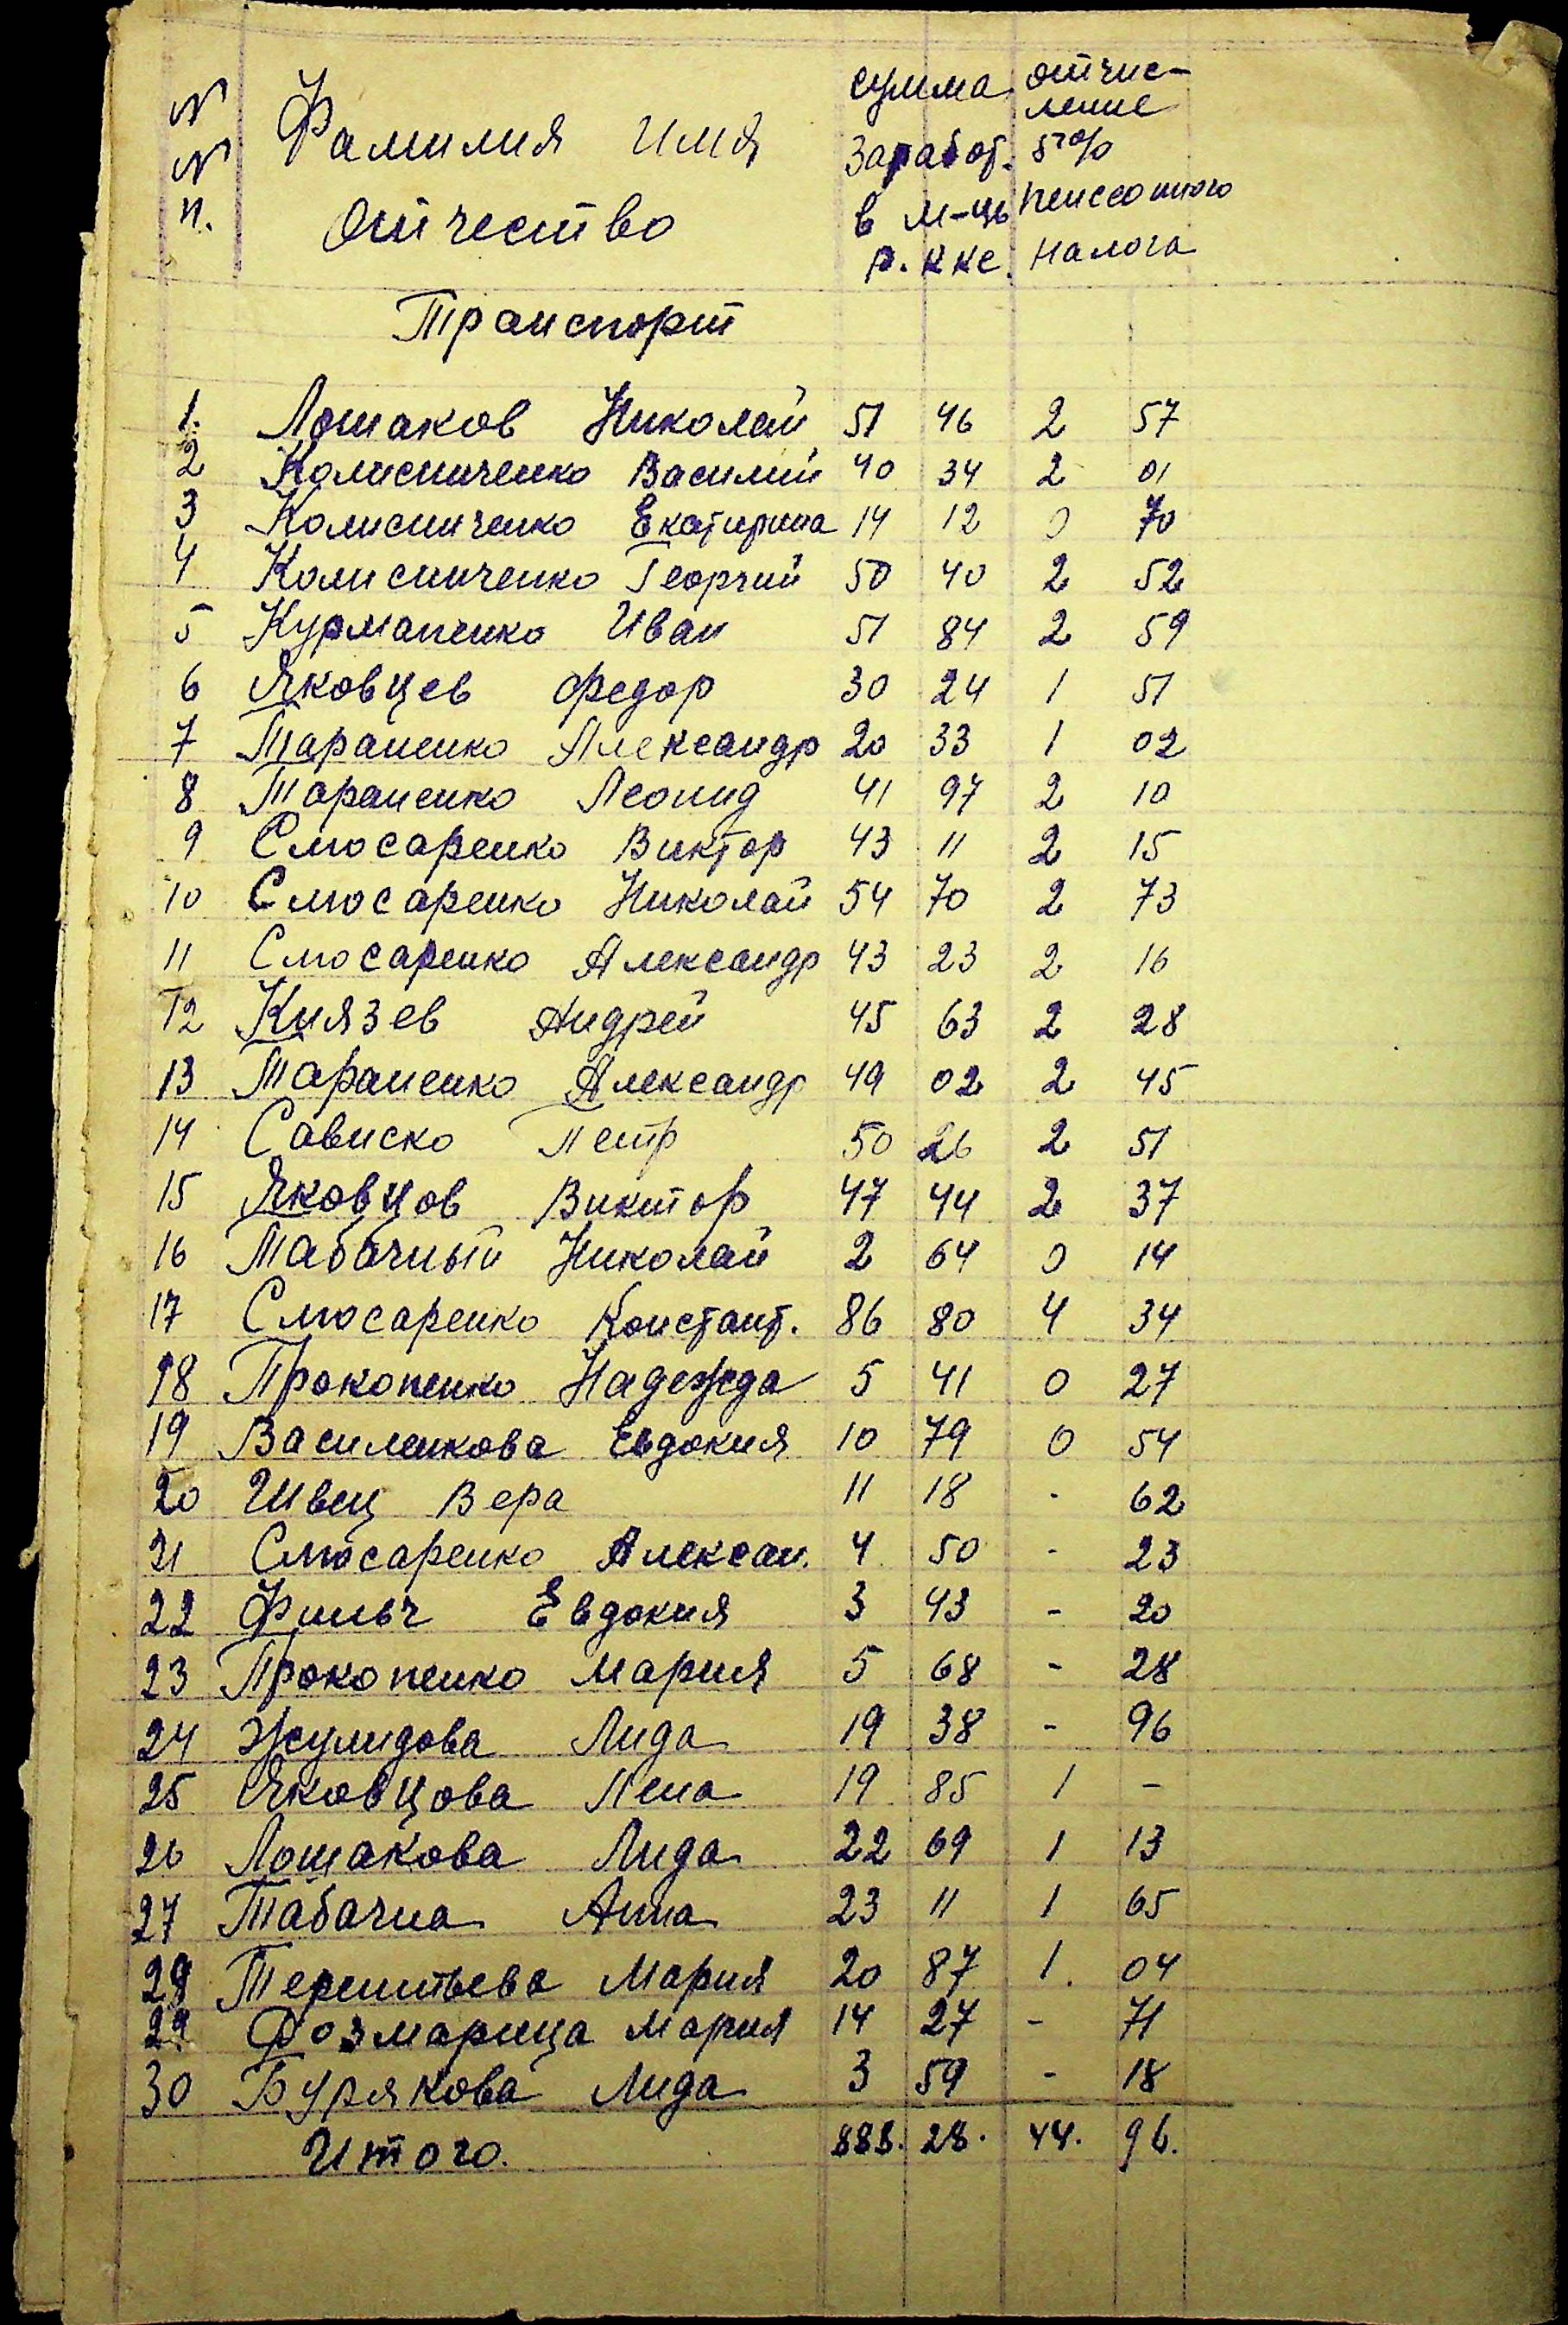 N Фамилия имя сумма отчис-
ление
N Заработ. 5%
п. Отчество в м-цъ пенссонного
р. к ке. налога
Транспорт
1. Лошаков Николай 51 46 2 57
2 Колисниченко Василий 40 34 2 01
3 Колисниченко Екатирина 14 12 0 70
4 Колисниченко Георгий 50 40 2 52
5 Курмапенко Иван 51 84 2 59
6 Яковцев Федор 30 24 1 51
7 Тараненко Александр 20 33 1 02
8 Тараненко Леонид 41 97 2 10
9 Слюсаренко Виктор 43 11 2 15
10 Слюсаренко Николай 54 70 2 73
11 Слюсаренко Александр 43 23 2 16
12 Князев Андрей 45 63 2 28
13 Тараненко Александр 49 02 2 45
14 Сависко Петр 50 26 2 51
15 Яковцов Виктор 47 44 2 37
16 Табачный Николай 2 64 0 14
17 Слюсаренко Констант. 86 80 4 34
18 Прокопенко Надежда 5 41 0 27
19 Василенкова Евдокия 10 79 0 54
20 Швец Вера 11 18 - 62
21 Слюсаренко Алексан. 4 50 - 23
22 Фильч Евдокия 3 43 - 20
23 Прокопенко Мария 5 68 - 28
24 Жулидова Лида 19 38 - 96
25 Яковцова Лена 19 85 1 -
26 Лошакова Лида 22 69 1 13
27 Табачна Анна 23 11 1 65
28 Терентьева Мария 20 87 1. 04
29 Розмарица Мария 14 27 - 71
30 Бурякова Лида 3 59 - 18
Итого. 888. 28. 44. 96.